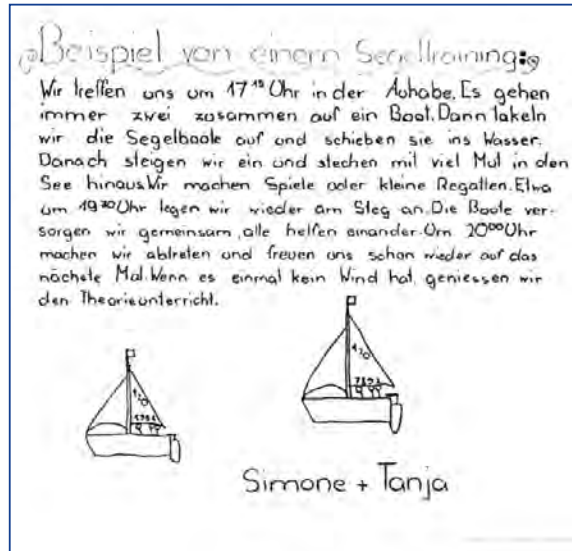 Beispiel von einem Segeltraining:
Wir treffen uns um 17¹⁵ Uhr in der Auhabe. Es gehen
immer zwei zusammen auf ein Boot. Dann takeln
wir die Segelboote auf und schieben sie ins Wasser.
Danach steigen wir ein und stechen mit viel Mut in den
See hinaus. Wir machen Spiele oder kleine Regatten. Etwa
um 19³⁰ Uhr legen wir wieder am Steg an. Die Boote ver-
sorgen wir gemeinsam, alle helfen einander. Um 20⁰⁰ Uhr
machen wir abtreten und freuen uns schon wieder auf das
nächste Mal. Wenn es einmal kein Wind hat, geniessen wir
den Theorieunterricht.
420
420
Simone + Tanja